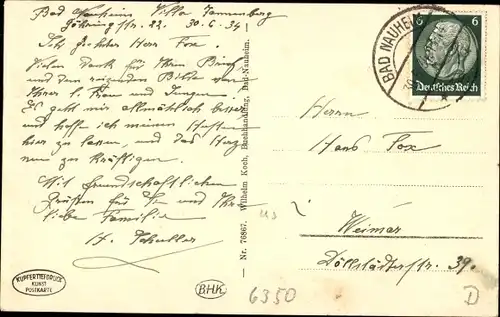 Bad Nauheim Villa Tannenberg
Göhringstr. 22. 30.6.34
Sehr geehrter Herr Fox.
Vielen Dank für Ihren Brief
und den reizenden Bilde von
Ihrer l. Frau und Jungen.
Es geht mir allmählich besser
und hoffe ich meinen Husten
hier zu lassen, und das Herz
neu zu kräftigen.
Mit freundschaftlichen
Grüßen für Sie und Ihre
liebe Familie
H. Schuller
KUPFERTIEFDRUCK
KUNST
POSTKARTE
BHK
Nr. 76867. Wilhelm Koch, Buchhandlung, Bad-Nauheim.
BAD NAUHEIM
6 6
Deutsches Reich
Herrn
Hans Fox
Weimar
Döllstädterstr. 39.
us
6350
D